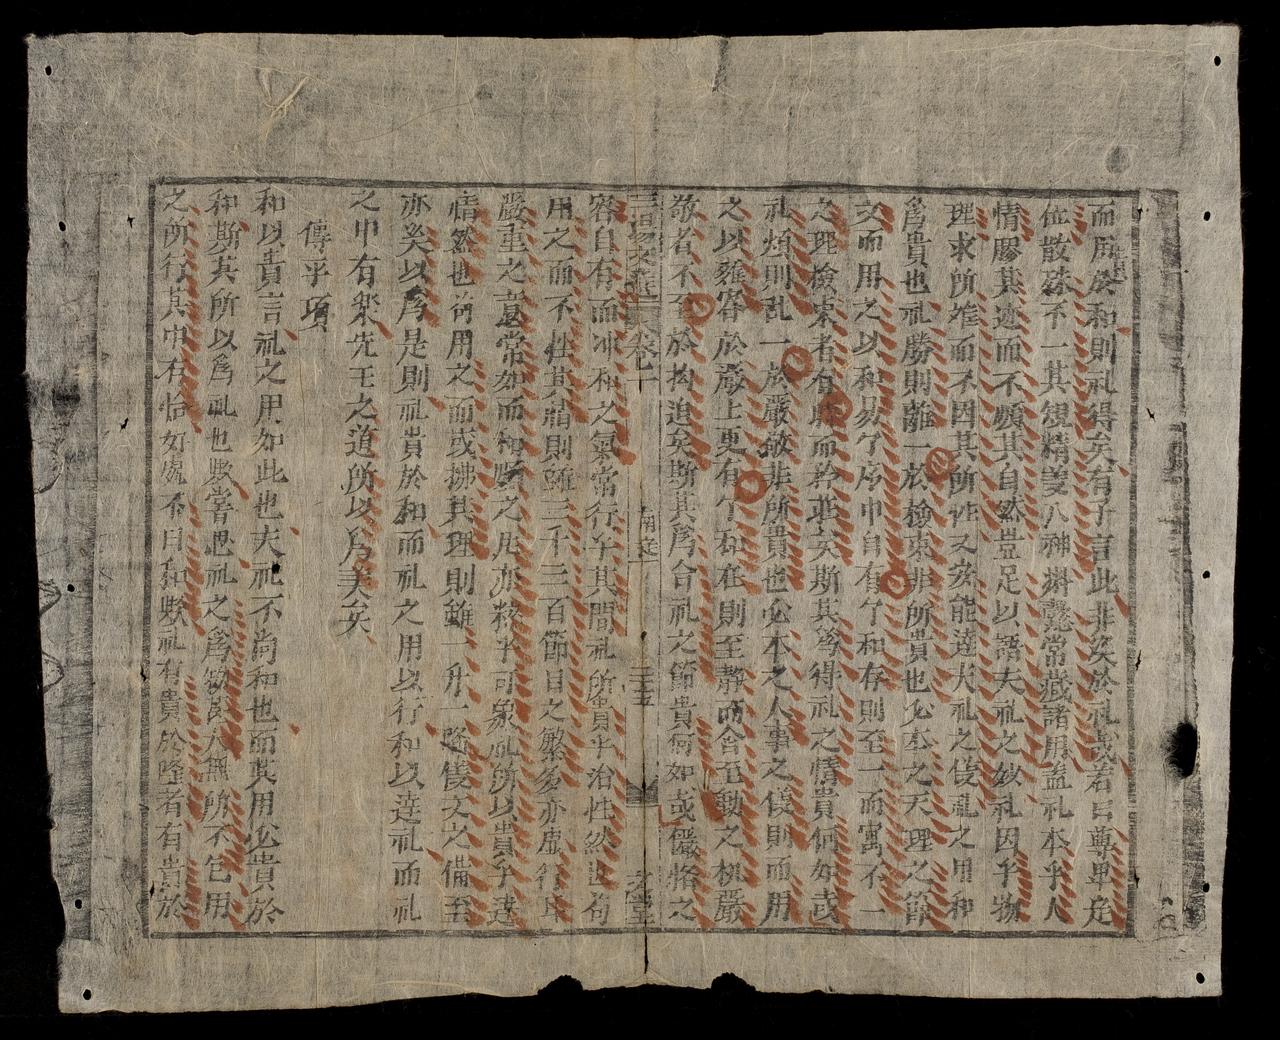 而厭於和則礼得矣有子言此非矣於礼哉若曰尊卑定
位散殊不一其䂓精義入神斟毫常藏諸用盖礼本乎人
情膠其迹而不順其自然豈足以語夫礼之妙礼因乎物
理求所难而不因其所性又安能達夫礼之俴礼之用和
爲貴也礼勝則離一於檢束非所貴也必本之天理之節
文而用之以和易乍序中自有乍和存則至一而寓不一
之理檢束者有時而矜莊矣斯其爲得礼之情貴何如或
礼煩則乱一於嚴敬非所貴也必本之人事之儀則而用
之以雍容於嚴上更有乍和在則至静而含至動之機嚴
敬者不至於拘迫矣斯其爲合礼之節貴何如或儼恪之
卷十
容自有而冲和之氣常行乎其間礼所貴乎治性然也苟
用之而不性其情則雖三千三百節目之繁多亦虚行耳
嚴重之意常如而和順之旡亦粹乎可象礼所以貴乎達
情然也苟用之而或拂其理則雖一升一降俴文之備至
亦矣以爲是則礼貴於和而礼之用以行和以達礼而礼
之中有樂先王之道所以爲美矣
傳乎項
和以貴言礼之用如此也夫礼不尚和也而其用必貴於
和斯其所以爲礼也歟嘗思礼之爲 無所不包用
之所行其中有恰好處不曰和歟礼有貴於隆者有貴於